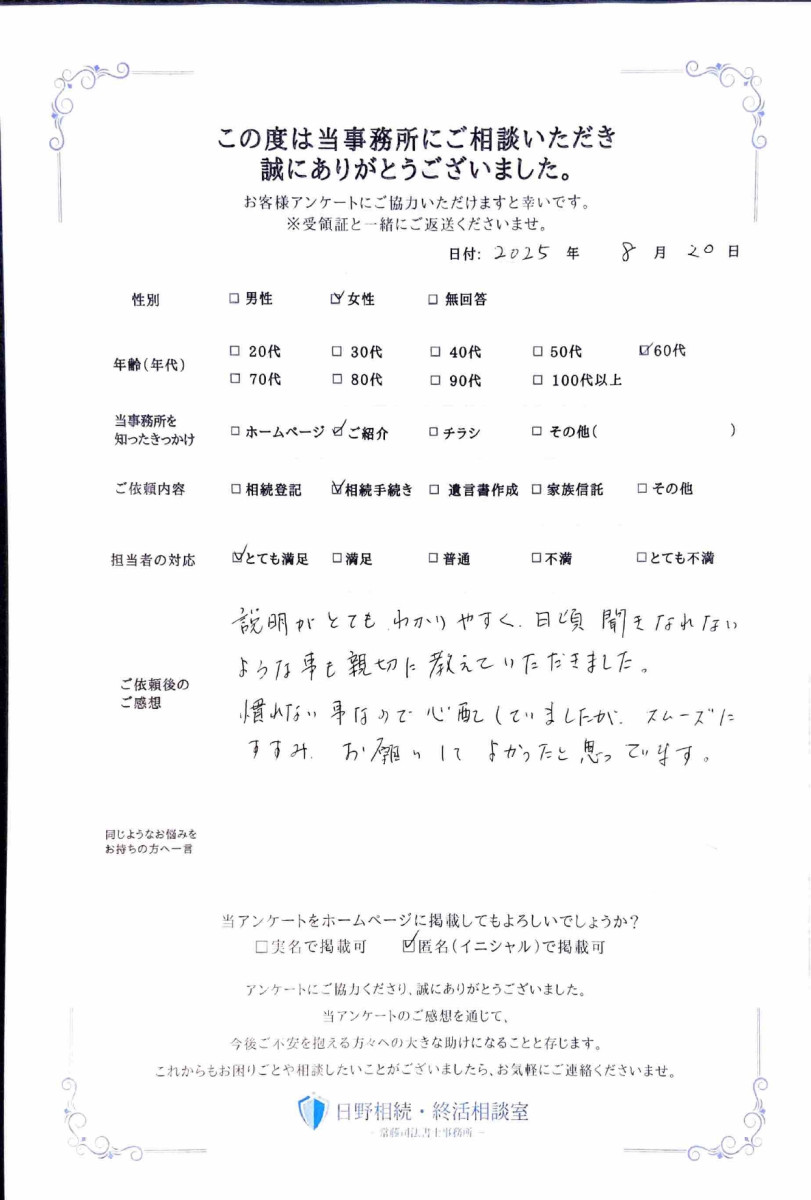 この度は当事務所にご相談いただき
誠にありがとうございました。
お客様アンケートにご協力いただけますと幸いです。
※受領証と一緒にご返送くださいませ。
日付: 2025 年 8 月 20 日
性別 □ 男性 ☑ 女性 □ 無回答
年齢(年代)
□ 20代 □ 30代 □ 40代 □ 50代 ☑ 60代
□ 70代 □ 80代 □ 90代 □ 100代以上
当事務所を
知ったきっかけ
□ ホームページ ☑ ご紹介 □ チラシ □ その他( )
ご依頼内容 □ 相続登記 ☑ 相続手続き □ 遺言書作成 □ 家族信託 □ その他
担当者の対応 ☑ とても満足 □ 満足 □ 普通 □ 不満 □ とても不満
ご依頼後の
ご感想
説明がとてもわかりやすく、日頃聞きなれない
ような事も親切に教えていただきました。
慣れない事なので心配していましたが、スムーズに
すすみ、お願いしてよかったと思っています。
同じようなお悩みを
お持ちの方へ一言
当アンケートをホームページに掲載してもよろしいでしょうか?
□ 実名で掲載可 ☑ 匿名(イニシャル)で掲載可
アンケートにご協力くださり、誠にありがとうございました。
当アンケートのご感想を通じて、
今後ご不安を抱える方々への大きな助けになることと存じます。
これからもお困りごとや相談したいことがございましたら、お気軽にご連絡くださいませ。
日野相続・終活相談室
- 斎藤司法書士事務所 -